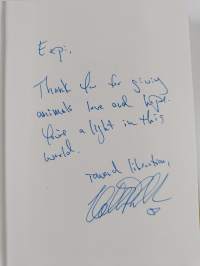 Thank You for giving
animals love and hope.
You're a light in this
world.
Toward liberation,